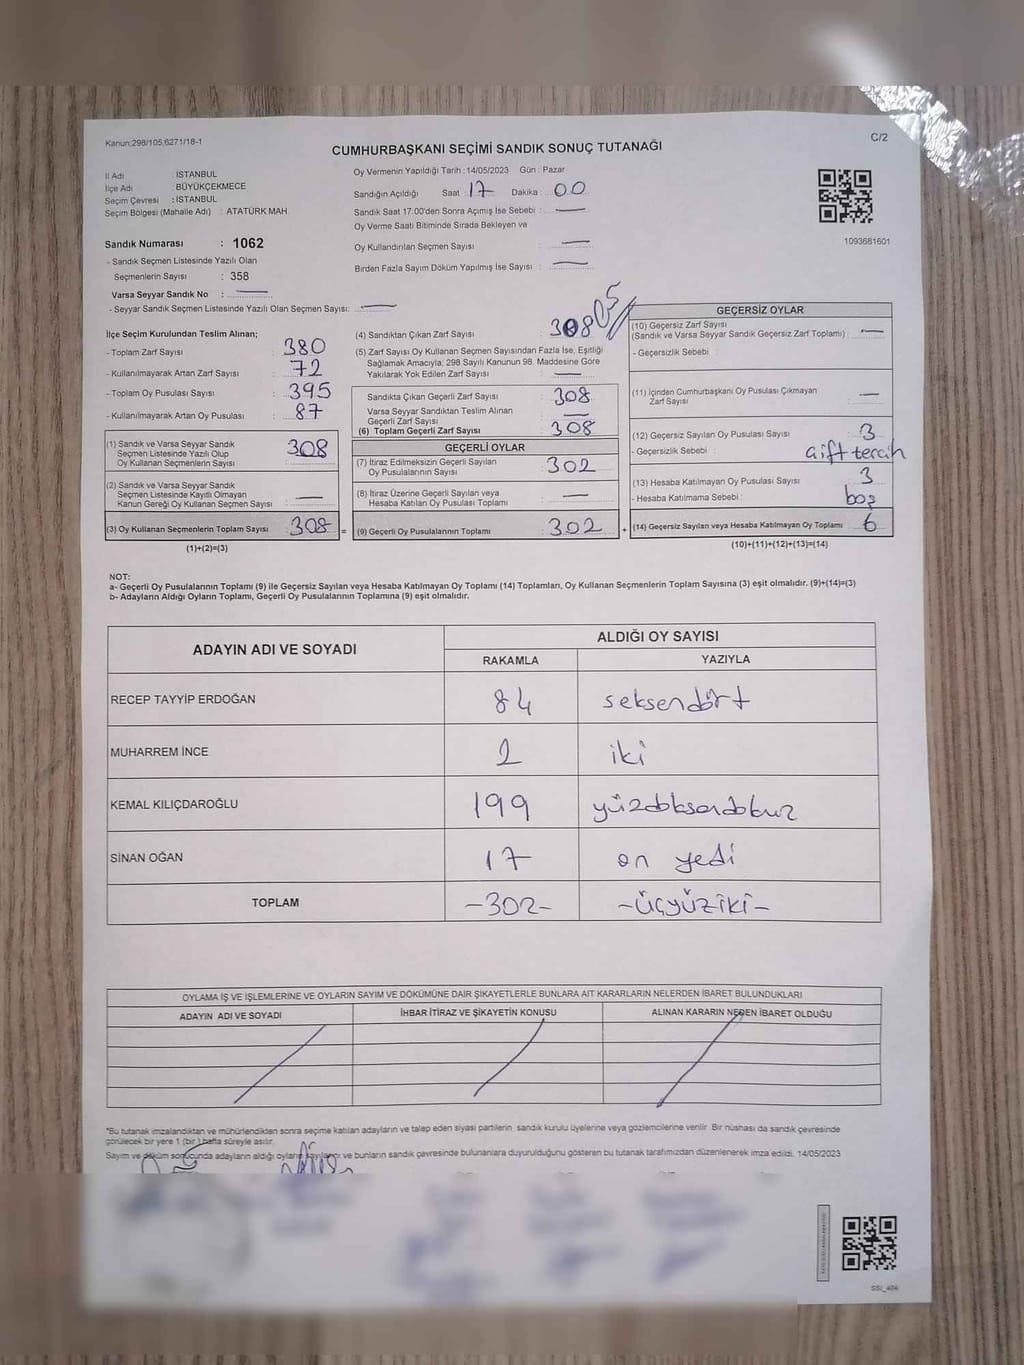 Kanun:298/105,6271/18-1
C/2
CUMHURBAŞKANI SEÇİMİ SANDIK SONUÇ TUTANAĞI
İl Adı : İSTANBUL
İlçe Adı : BÜYÜKÇEKMECE
Seçim Çevresi : İSTANBUL
Seçim Bölgesi (Mahalle Adı) : ATATÜRK MAH
Sandık Numarası : 1062
- Sandık Seçmen Listesinde Yazılı Olan
Seçmenlerin Sayısı : 358
Varsa Seyyar Sandık No : —
- Seyyar Sandık Seçmen Listesinde Yazılı Olan Seçmen Sayısı: —
Oy Vermenin Yapıldığı Tarih : 14/05/2023 Gün : Pazar
Sandığın Açıldığı Saat : 17 Dakika : 00
Sandık Saat 17:00'den Sonra Açımış İse Sebebi : —
Oy Verme Saati Bitiminde Sırada Bekleyen ve
Oy Kullandırılan Seçmen Sayısı : —
Birden Fazla Sayım Döküm Yapılmış İse Sayısı : —
1093681601
İlçe Seçim Kurulundan Teslim Alınan;
- Toplam Zarf Sayısı : 380
- Kullanılmayarak Artan Zarf Sayısı : 72
- Toplam Oy Pusulası Sayısı : 395
- Kullanılmayarak Artan Oy Pusulası : 87
(1) Sandık ve Varsa Seyyar Sandık
Seçmen Listesinde Yazılı Olup
Oy Kullanan Seçmenlerin Sayısı : 308
(2) Sandık ve Varsa Seyyar Sandık
Seçmen Listesinde Kayıtlı Olmayan
Kanun Gereği Oy Kullanan Seçmen Sayısı : —
(3) Oy Kullanan Seçmenlerin Toplam Sayısı : 308 =
(1)+(2)=(3)
(4) Sandıktan Çıkan Zarf Sayısı : 308
(5) Zarf Sayısı Oy Kullanan Seçmen Sayısından Fazla İse, Eşitliği
Sağlamak Amacıyla; 298 Sayılı Kanunun 98. Maddesine Göre
Yakılarak Yok Edilen Zarf Sayısı : —
Sandıkta Çıkan Geçerli Zarf Sayısı : 308
Varsa Seyyar Sandıktan Teslim Alınan
Geçerli Zarf Sayısı : —
(6) Toplam Geçerli Zarf Sayısı : 308
GEÇERLİ OYLAR
(7) İtiraz Edilmeksizin Geçerli Sayılan
Oy Pusulalarının Sayısı : 302
(8) İtiraz Üzerine Geçerli Sayılan veya
Hesaba Katılan Oy Pusulası Toplamı : —
(9) Geçerli Oy Pusulalarının Toplamı : 302 +
GEÇERSİZ OYLAR
(10) Geçersiz Zarf Sayısı
(Sandık ve Varsa Seyyar Sandık Geçersiz Zarf Toplamı) : —
- Geçersizlik Sebebi :
(11) İçinden Cumhurbaşkanı Oy Pusulası Çıkmayan
Zarf Sayısı : —
(12) Geçersiz Sayılan Oy Pusulası Sayısı : 3
- Geçersizlik Sebebi : çift tercih
(13) Hesaba Katılmayan Oy Pusulası Sayısı : 3
- Hesaba Katılmama Sebebi : boş
(14) Geçersiz Sayılan veya Hesaba Katılmayan Oy Toplamı : 6
(10)+(11)+(12)+(13)=(14)
NOT:
a- Geçerli Oy Pusulalarının Toplamı (9) ile Geçersiz Sayılan veya Hesaba Katılmayan Oy Toplamı (14) Toplamları, Oy Kullanan Seçmenlerin Toplam Sayısına (3) eşit olmalıdır. (9)+(14)=(3)
b- Adayların Aldığı Oyların Toplamı, Geçerli Oy Pusulalarının Toplamına (9) eşit olmalıdır.
ADAYIN ADI VE SOYADI ALDIĞI OY SAYISI
RAKAMLA YAZIYLA
RECEP TAYYİP ERDOĞAN 84 seksendört
MUHARREM İNCE 2 iki
KEMAL KILIÇDAROĞLU 199 yüzdoksandokuz
SİNAN OĞAN 17 on yedi
TOPLAM -302- -üçyüziki-
OYLAMA İŞ VE İŞLEMLERİNE VE OYLARIN SAYIM VE DÖKÜMÜNE DAİR ŞİKAYETLERLE BUNLARA AİT KARARLARIN NELERDEN İBARET BULUNDUKLARI
ADAYIN ADI VE SOYADI İHBAR İTİRAZ VE ŞİKAYETİN KONUSU ALINAN KARARIN NEDEN İBARET OLDUĞU
*Bu tutanak imzalandıktan ve mühürlendikten sonra seçime katılan adayların ve talep eden siyasi partilerin sandık kurulu üyelerine veya gözlemcilerine verilir. Bir nüshası da sandık çevresinde
görülecek bir yere 1 (bir ) hafta süreyle asılır.
Sayım ve döküm sonucunda adayların aldığı oyların sayılarını ve bunların sandık çevresinde bulunanlara duyurulduğunu gösteren bu tutanak tarafımızdan düzenlenerek imza edildi. 14/05/2023
SSI_404